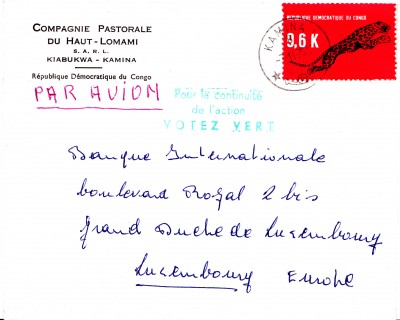 COMPAGNIE PASTORALE
DU HAUT-LOMAMI
S. A. R. L.
KIABUKWA - KAMINA
République Démocratique du Congo
PAR AVION
KAMINA
REPUBLIQUE DEMOCRATIQUE DU CONGO
9,6 K
Pour la continuité
de l'action
VOTEZ VERT
Banque Internationale
boulevard Royal 2 bis
Grand Duché de Luxembourg
Luxembourg Europe